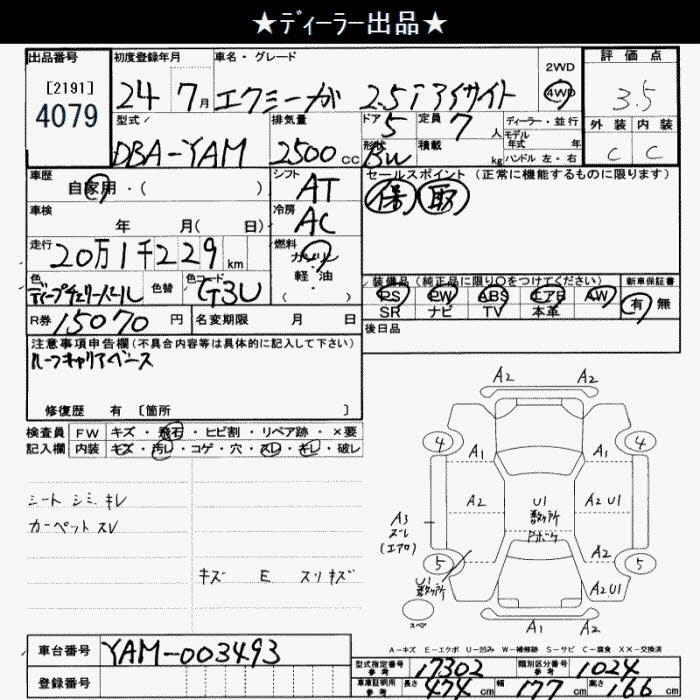 ★ディーラー出品★
出品番号 初度登録年月 車名・グレード 2WD 評価点
[2191] 24 7月 エクシーガ 2.5i アイサイト 4WD 3.5
4079
型式 排気量 ドア 定員 ディーラー・並行 外装 内装
DBA-YAM 2500cc 5 7人 モデル年式 年 C C
形状 BW 積載 kg ハンドル 左・右
車歴 シフト セールスポイント (正常に機能するものに限ります)
自家用・( ) AT 保 取
車検 冷房
年 月( 日) AC
走行 燃料
20万1千229km ガソリン
色 色替 色コード 軽油 装備品 (純正品に限り○をつけてください) 新車保証書
ディープチェリーパール G3U ( ) PS PW ABS エアB AW 有 無
SR ナビ TV 本革
R券 15070円 名変期限 月 日 後日品
注意事項申告欄(不具合内容等は具体的に記入して下さい)
ルーフキャリアベース
修復歴 有 [箇所 ]
検査員 FW キズ・飛石・ヒビ割・リペア跡・×要
記入欄 内装 キズ・汚レ・コゲ・穴・スレ・キレ・破レ
シート シミ キレ
カーペット スレ
キズ E スリキズ
A2 A2
4 A1 A1 4
A2 U1 数ヶ所 A2 U1
A3 ズレ (エアロ) Pボケ
A2
5 5
U1 数ヶ所 A2 U1
スペア
A1 A2
A-キズ E-エクボ U-凹み W-補修跡 S-サビ C-腐食 XX-交換済
車台番号 YAM-003493
登録番号
型式指定番号 参考 17302 類別区分番号 参考 1024
車庫証明用 参考 長さ 474cm 幅 177cm 高さ 166cm